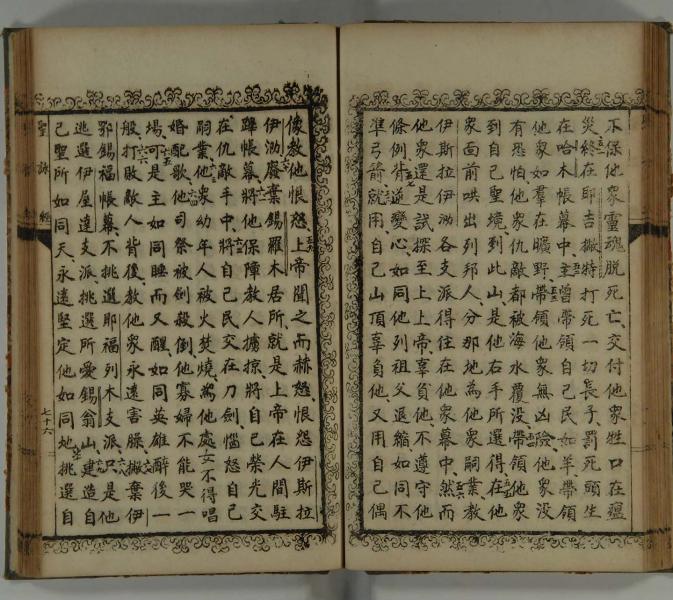 不保他衆靈魂脫死亡交付他衆牲口在瘟
災終在耶吉撇特打死一切長子罰死頭生
在哈木帳幕中主曾帶領自己民如羊帶領
他衆如羣在曠野帶領他衆無凶險他衆沒
有恐怕他衆仇敵都被海水覆沒帶領他衆
到自己聖境到此山是他右手所選得在他
衆面前哄出列邦人分那地為他衆嗣業教
伊斯拉伊泐各支派得住在他衆幕中然而
他衆還是試探至上上帝辜負他不遵守他
條例背逆變心如同他列祖父退縮如同不
準弓箭就用自己山頂辜負他又用自己偶
像教他恨怒上帝聞之而赫怒恨怨伊斯拉
伊泐廢棄錫羅木居所就是上帝在人間駐
蹕帳幕將他保障教人擄掠將自己榮光交
在仇敵手中將自己民交在刀劍惱怒自己
嗣業他衆幼年人被火焚燒為他處女不得唱
婚配歌他司祭被劍殺倒他寡婦不能哭一
場可是主如同睡而又醒如同英雄醉後一
般打敗敵人背後教他衆永遠害臊撇棄伊
鄂錫福帳幕不挑選耶福列木支派只是他
挑選伊屋達支派挑選所愛錫翁山建造自
己聖所如同天永遠堅定他如同地挑選自
聖詠經
七十六